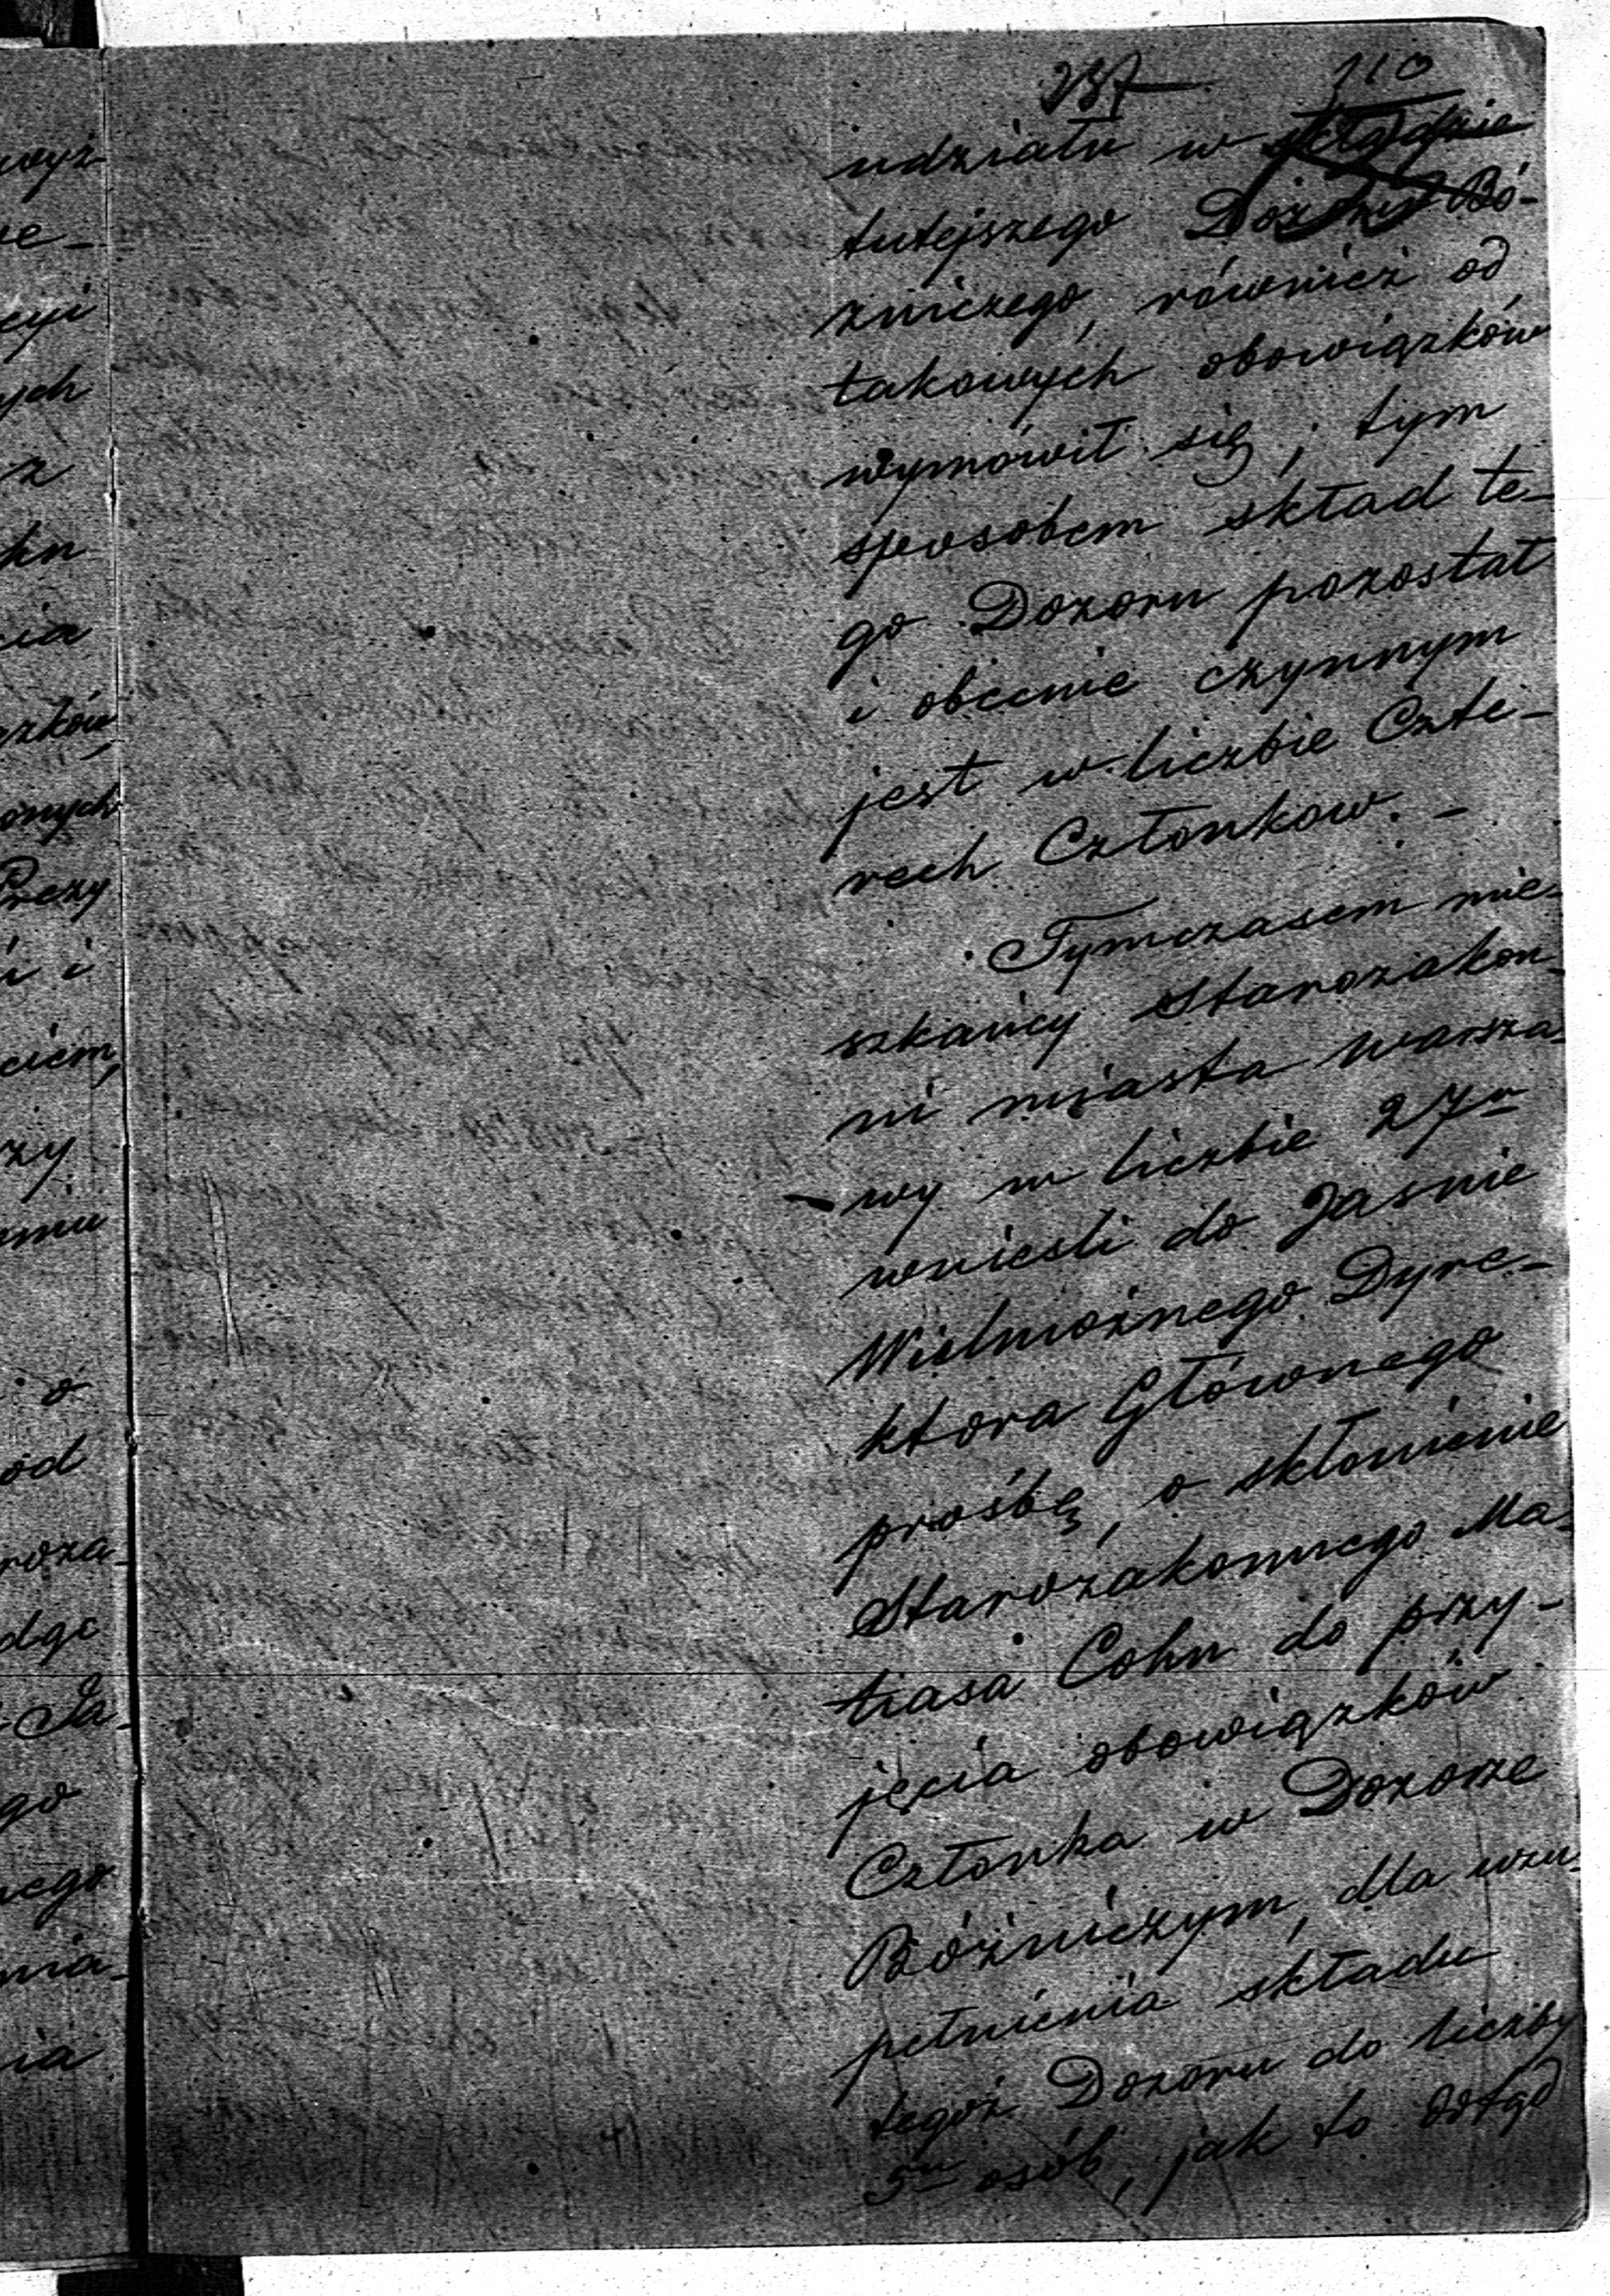 237 110
udziału w składzie
tutejszego Dozoru Bó-
zniczego, również od
takowych obowiązków
wymówił się; tym
sposobem skład te-
go Dozoru pozostał
i obecnie czynnym
jest w liczbie Czte-
rech Członkow. -
Tymczasem mie-
szkańcy Starozakon-
ni miasta Warsza-
wy w liczbie 27u
wnieśli do Jasnie
Wielmożnego Dyre-
ktora Głównego
prośbę, o skłonienie
Starozakonnego Ma-
tiasa Cohn do przy-
jęcia obowiązków
Członka w Dozorze
Bóżniczym, dla uzu-
pełnienia składu
tegoż Dozoru do liczby
5u osób, jak to dotąd